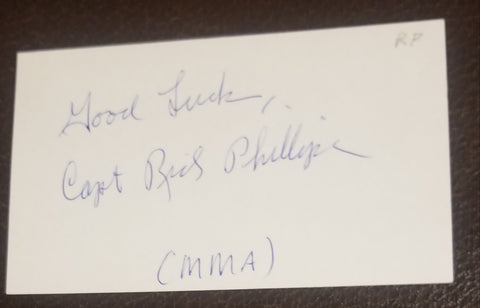 RP
Good Luck,
Capt Rich Phillips
(MMA)